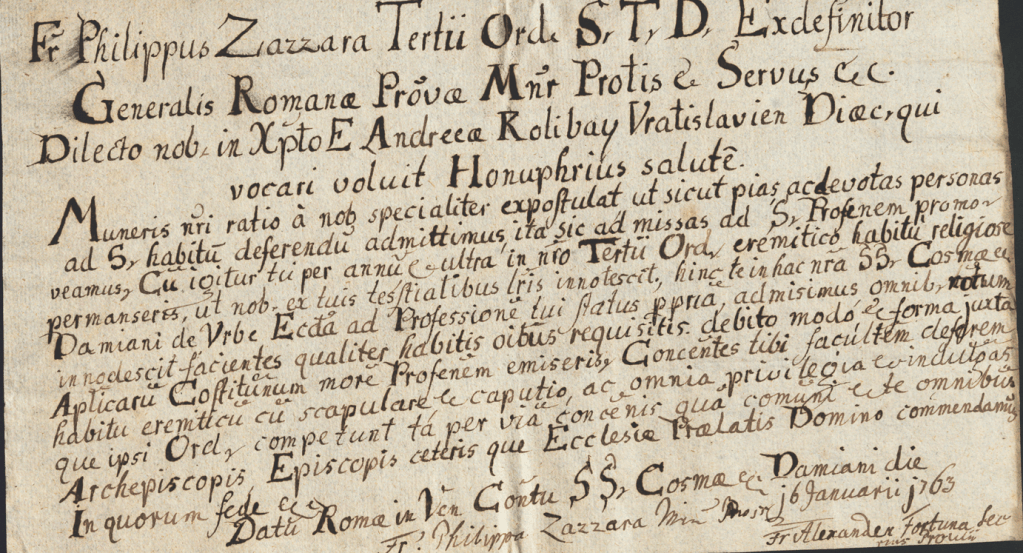 Fr Philippus Zazzara Tertii Ord. S. T. D. Exdefinitor
Generalis Romanæ Provæ Mnr Protis & Servus &c.
Dilecto nob. in Xpto E Andreeæ Rolibay Vratislavien Diæc, qui
vocari voluit Honuphrius salutē.
Muneris nri ratio à nob specialiter expostulat ut sicut pias ac devotas personas
ad S. habitū deferendū admittimus, ita sic ad missas ad S. Profenem promo-
veamus, Cū igitur tu per annū & ultra in nro Tertii Ord. eremitico habitu religiose
permanseris, ut nob. ex tuis testialibus lris innotescit, hinc te in hac nra SS. Cosmæ et
Damiani de Urbe Eccta ad Professionē tui status ppriā, admisimus omnib. notum
innodescit facientes qualiter habitis oibus requisitis debito modo & forma juxta
Aplicarū Costitūnum morē Profenēm emiseris, Concentes tibi facultem deferem
habitu eremiticū cū scapulare & caputio, ac omnia privilegia & indultas
que ipsi Ord. competunt tā per viā concenis quā comuni & te omnibus
Archepiscopis, Episcopis ceteris que Ecclesiæ Prælatis Domino commendamus
In quorum fede &c
Datū Romæ in Ven Contu SS. Cosmæ & Damiani die
16 Januarii 1763
Fr. Philippus Zazzara Min
Fr Alexander Fortuna Sec